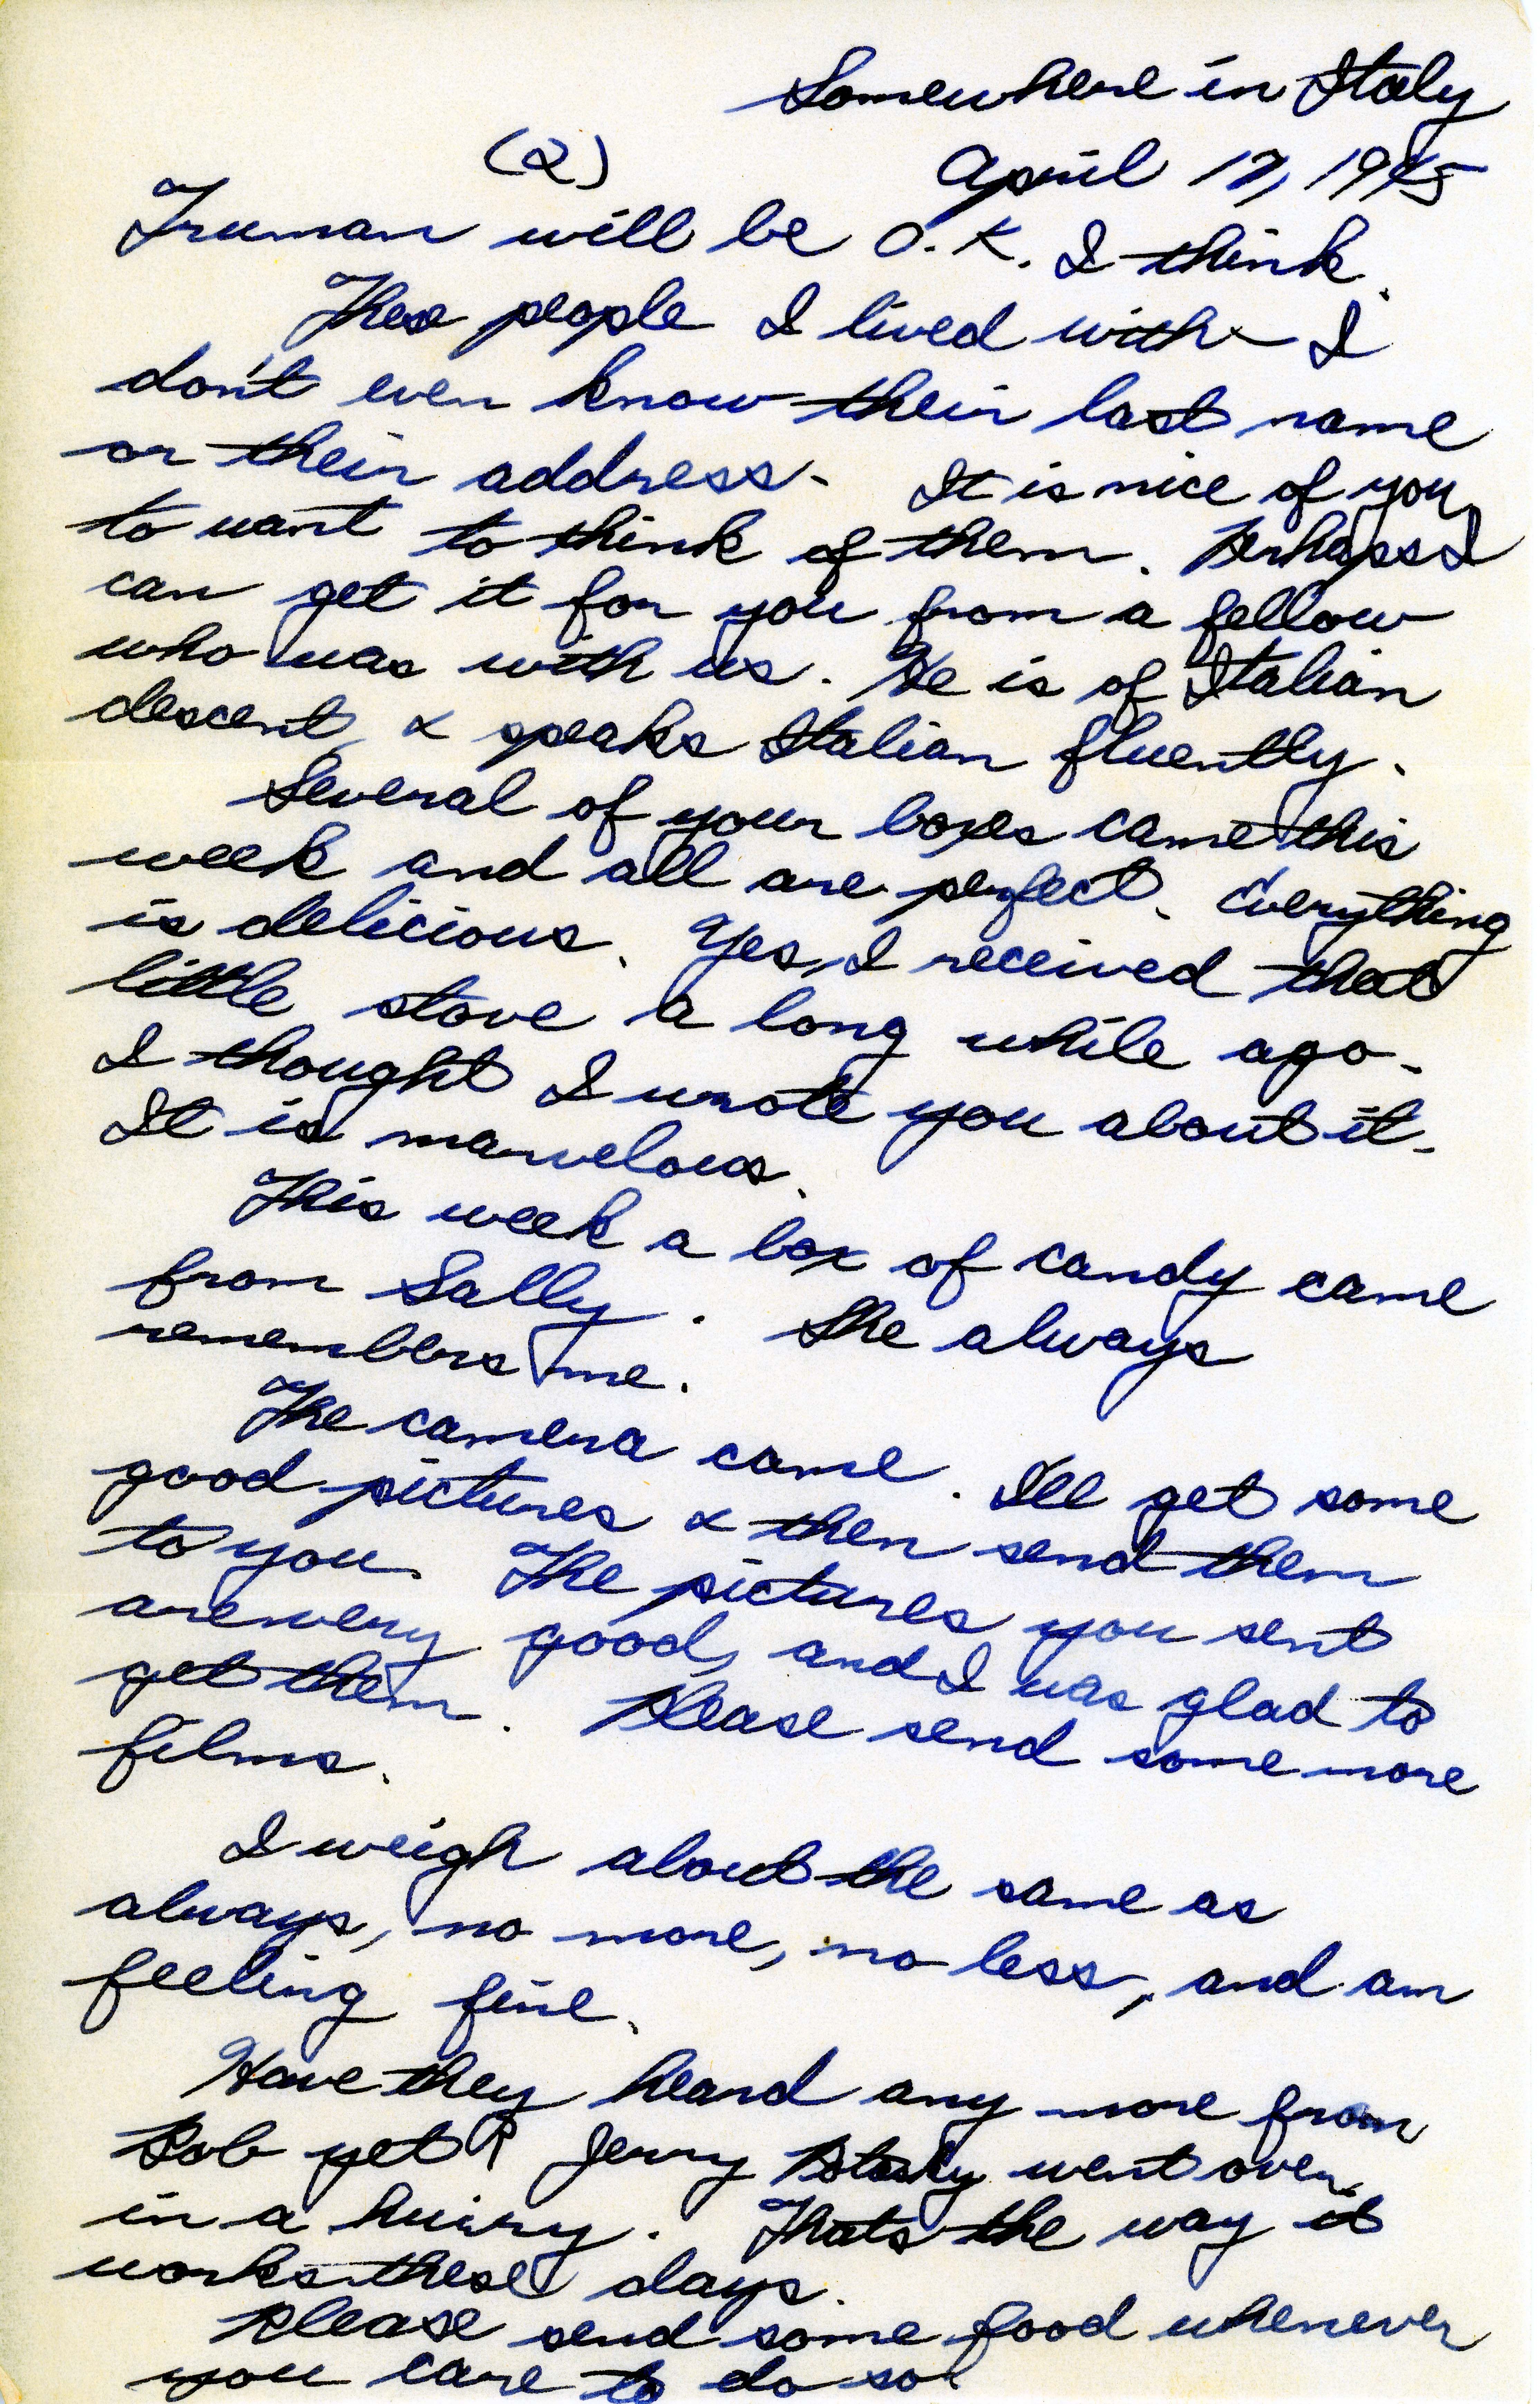 Somewhere in Italy
(2) April 17, 1945
Truman will be O.K. I think.
These people I lived with - I
don't even know their last name
or their address. It is nice of you
to want to think of them. Perhaps I
can get it for you from a fellow
who was with us. He is of Italian
descent, & speaks Italian fluently.
Several of your boxes came this
week and all are perfect. Everything
is delicious. Yes, I received that
little stove a long while ago.
I thought I wrote you about it.
It is marvelous.
This week a box of candy came
from Sally. She always
remembers me.
The camera came. I'll get some
good pictures & then send them
to you. The pictures you sent
are very good, and I was glad to
get them. Please send some more
films.
I weigh about the same as
always, no more, no less, and am
feeling fine.
Have they heard any more from
Bob yet? Jerry went over
in a hurry. Thats the way it
works these days.
Please send some food whenever
you care to do so.